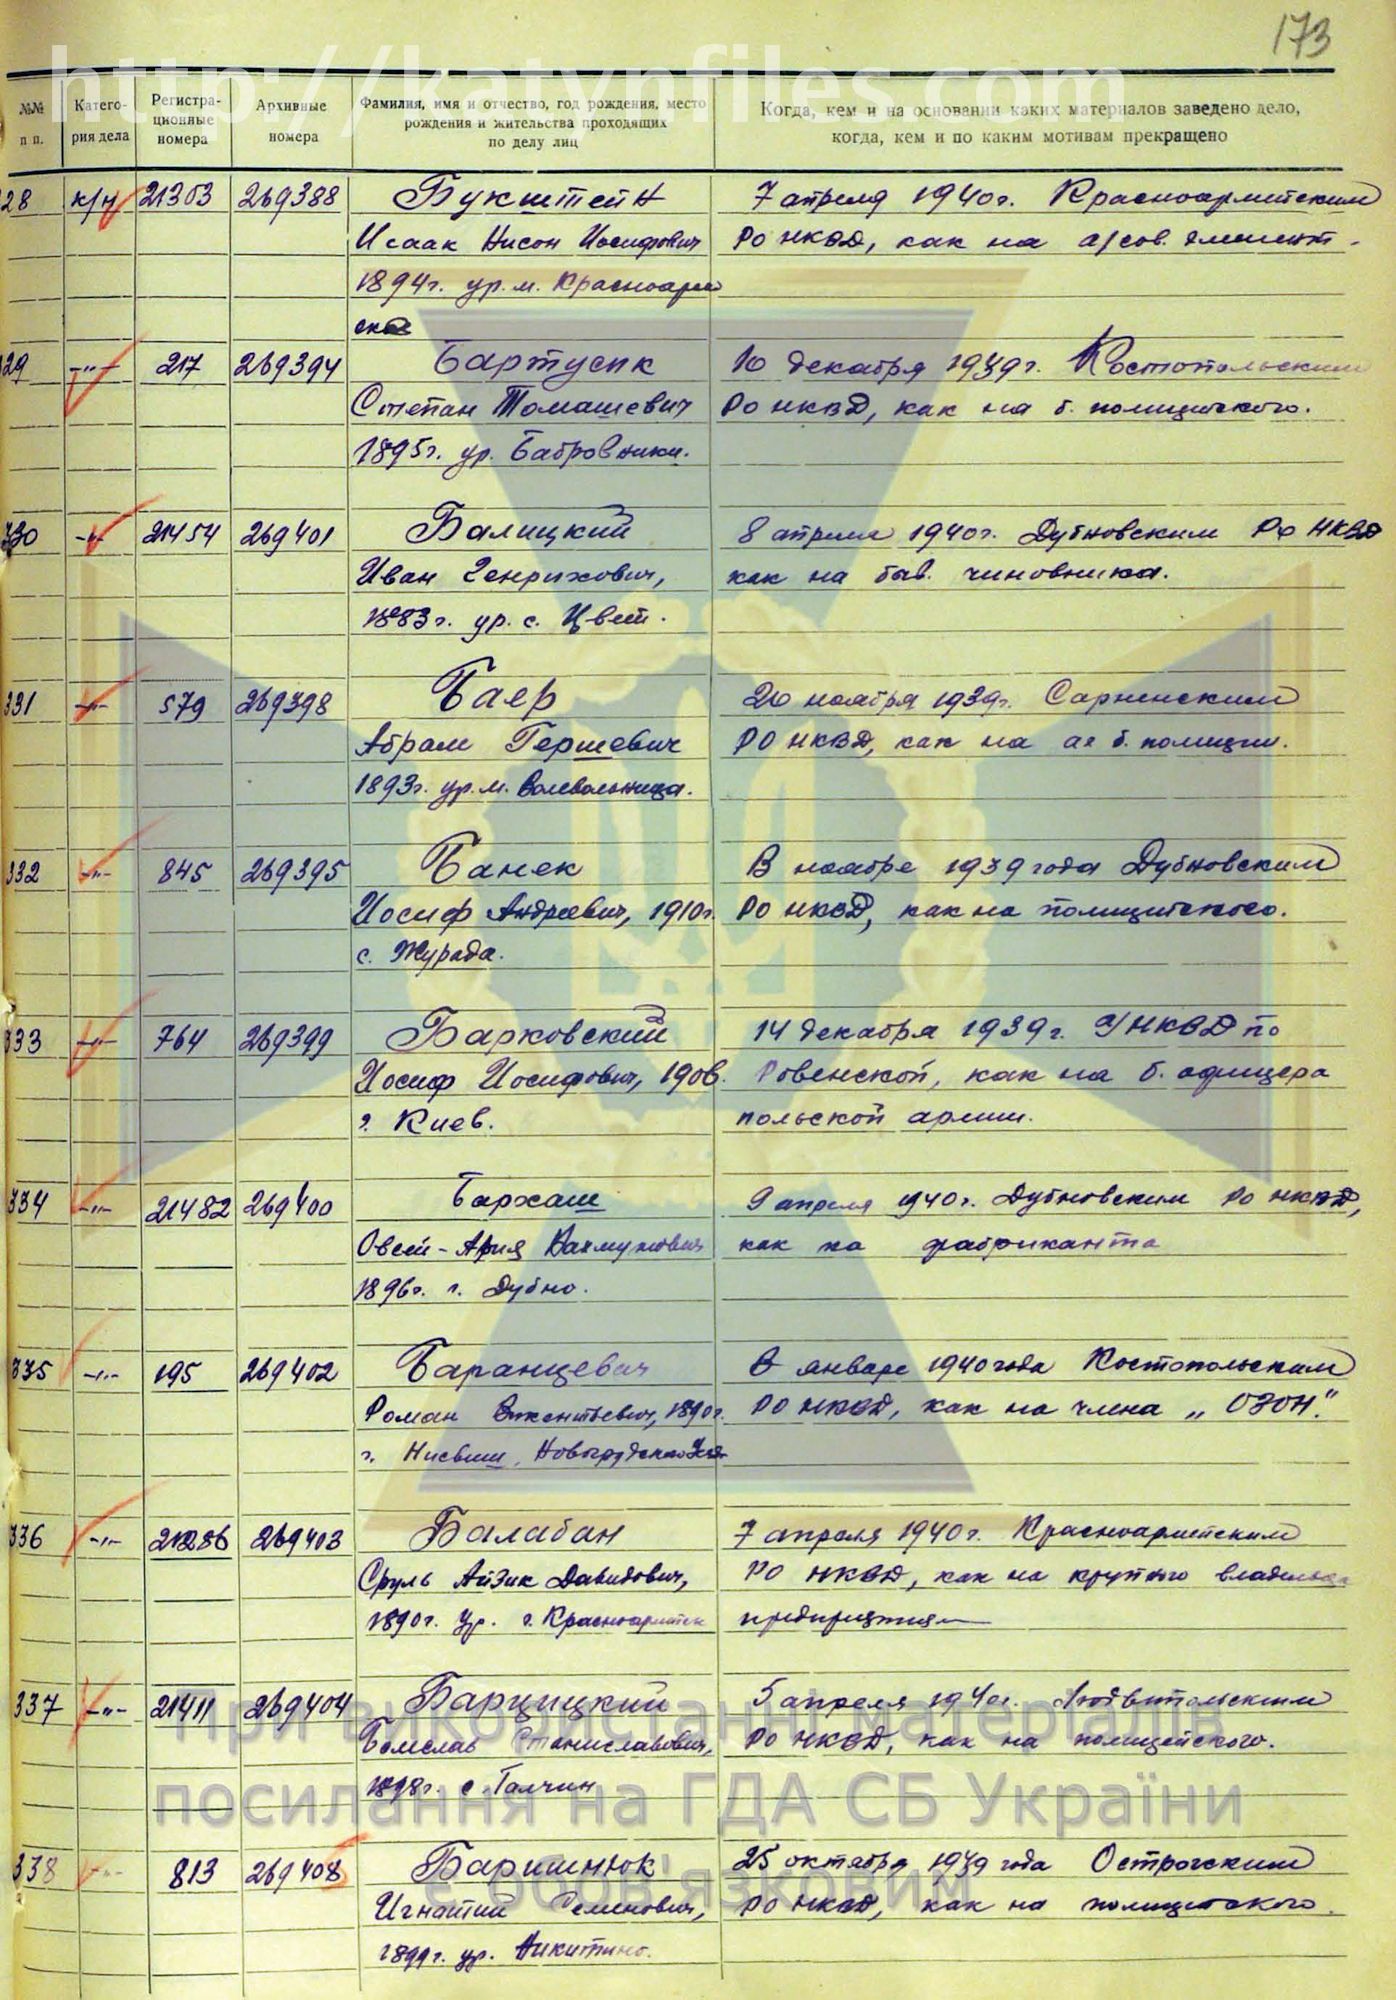 173
http://katynfiles.com
№№ п п.
Катего-
рия дела
Регистра-
ционные
номера
Архивные
номера
Фамилия, имя и отчество, год рождения, место
рождения и жительства проходящих
по делу лиц
Когда, кем и на основании каких материалов заведено дело,
когда, кем и по каким мотивам прекращено
28 к/н 21303 269388 Букштейн 7 апреля 1940г. Красноармейским
Исаак Нисон Иосифович РО НКВД, как на а/сов. элемент.
1894г. ур. м. Красноармей
ска
29 -"- 217 269394 Бартусик 10 декабря 1939г. Костопольским
Степан Томашевич РО НКВД, как на б. полицейского.
1895г. ур. Бабровники.
330 -"- 21454 269401 Балицкий 8 апреля 1940г. Дубновским РО НКВД
Иван Генрихович, как на быв. чиновника.
1883г. ур. с. Цвет.
331 -"- 579 269398 Баер 20 ноября 1939г. Сарненским
Абрам Гершевич РО НКВД, как на аг б. полиции.
1893г. ур. м.
332 -"- 845 269395 Банек В ноябре 1939 года Дубновским
Иосиф Андреевич, 1910г. РО НКВД, как на полицейского.
с. Журада.
333 -"- 764 269399 Барковский 14 декабря 1939г. УНКВД по
Иосиф Иосифович, 1906. Ровенской, как на б. офицера
г. Киев. польской армии.
334 -"- 21482 269400 Бархаш 9 апреля 1940г. Дубновским РО НКВД,
Овсей-Ария как на фабриканта
1896г. г. Дубно.
335 -"- 195 269402 Баранцевич В январе 1940 года Костопольским
Роман Викентьевич, 1890г. РО НКВД, как на члена „ОЗОН".
г. Нисвиш, Новогрудского
336 -"- 21286 269403 Балабан 7 апреля 1940г. Красноармейским
Сруль Айзик Давидович, РО НКВД, как на крупного владельца
1890г. ур. г. Красноармейск предприятия
337 -"- 21411 269404 Барщицкий 5 апреля 1940г. Людвипольским
Болеслав Станиславович, РО НКВД, как на полицейского.
1898г. с. Галчин
338 -"- 813 269408 Баришнюк 25 октября 1939 года Острогским
Игнатий Семенович, РО НКВД, как на полицейского.
1899г. ур. Никитино.
При використанні матеріалів
посилання на ГДА СБ України
є обов'язковим